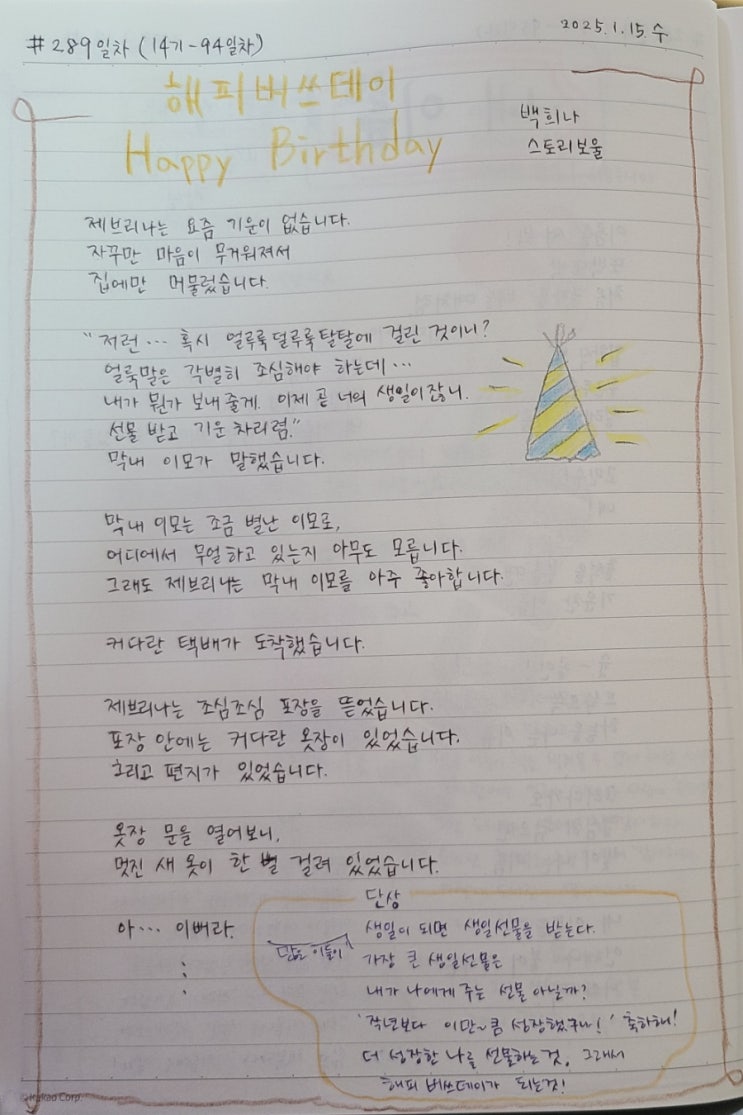 #289일차 (14기-94일차)
2025.1.15.수
해피버쓰데이
Happy Birthday
백희나
스토리보울
제브리나는 요즘 기운이 없습니다.
자꾸만 마음이 무거워져서
집에만 머물렀습니다.
"저런... 혹시 얼루룩덜루룩탈탈에 걸린 것이니?
얼룩말은 각별히 조심해야 하는데...
내가 뭔가 보내줄게. 이제 곧 너의 생일이잖니.
선물 받고 기운 차리렴."
막내 이모가 말했습니다.
막내 이모는 조금 별난 이모로,
어디에서 무얼 하고 있는지 아무도 모릅니다.
그래도 제브리나는 막내 이모를 아주 좋아합니다.
커다란 택배가 도착했습니다.
제브리나는 조심조심 포장을 뜯었습니다.
포장 안에는 커다란 옷장이 있었습니다.
그리고 편지가 있었습니다.
옷장 문을 열어보니,
멋진 새 옷이 한 벌 걸려 있었습니다.
아... 이뻐라.
⋮
단상
생일이 되면 생일선물을 받는다.
많은 이들이
가장 큰 생일선물은
내가 나에게 주는 선물 아닐까?
'작년보다 이만~큼 성장했구나!' 축하해!
더 성장한 나를 선물하는 것, 그래서
해피 버쓰데이가 되는것!
©Kakao Corp.